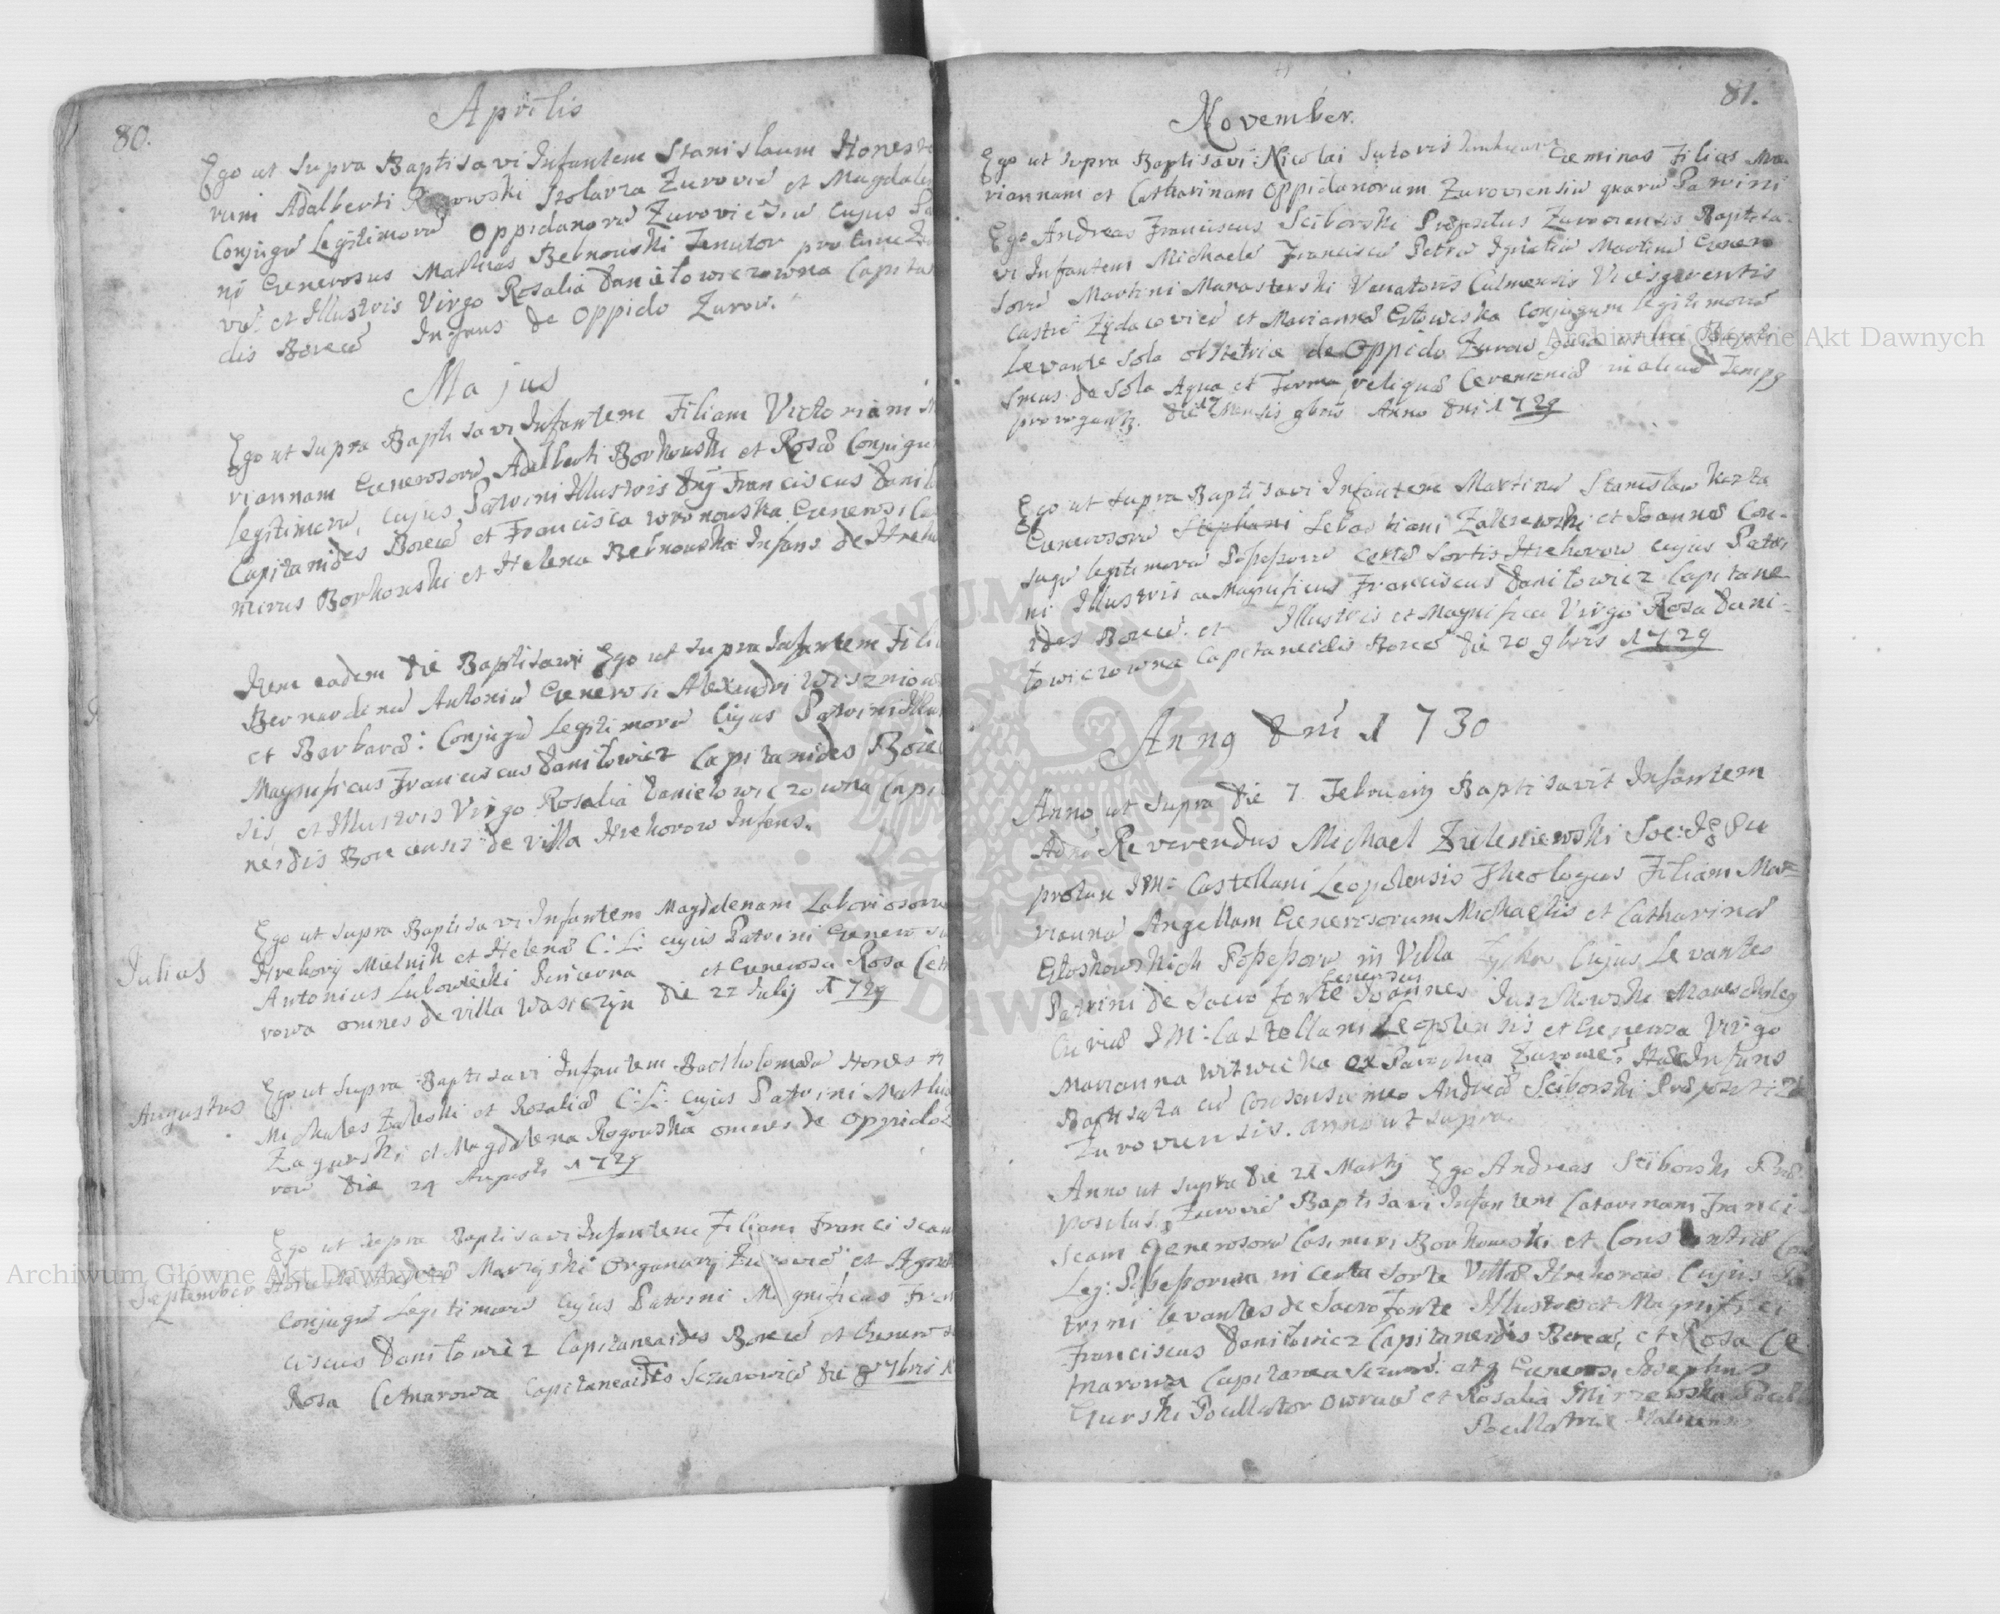 80.
Aprilis
Ego ut supra Baptisavi Infantem Stanislaum Honesto
rum Adalberti Stolarza Zurovien et Magdale
Conjugu Legitimoru Oppidanoru Zurovien cujus Pa
ni Generosus Mathias Bernowski Tenutor pro tunc
et Illustris Virgo Rosalia Danielowiczowna Capita
dis Borec Infans de Oppido Zurow.
Majus
Ego ut supra Baptisavi Infantem Filiam Victoriam
riannam Generosoru Adalberti Borkowski et Rosae Conjugu
legitimoru, cujus Patrini Illustris Dnus Franciscus Danil
Capitanides Borec et Francisca Wronowska Generosi Ca
mirus Borkowski et Helena Bernowska Infans de Hreho
Item eadem die Baptisavi Ego ut supra Infantem Filiu
Bernardinu Antoniu Generosi Alexandri Wiszniow
et Barbarae: Conjugu Legitimoru Cujus Patrini Illus
Magnificus Franciscus Danilowicz Capitanides Borec
sis, et Illustris Virgo Rosalia Danielowiczowna Capi
neidis Borecensis de villa Hrehorow Infans.
Ego ut supra Baptisavi Infantem Magdalenam Laboriosoru
Julius
Hrehory Mielnik et Helenae C: L: cujus Patrini Generosu
Antonius Lubowiecki et Generosa Rosa Cet
rowa omnes de villa Wasiczyn die 22 July 1729
Ego ut supra Baptisavi Infantem Bartholomaeu Honesti
Augustus
Michaeles Zaleski et Rosaliae C: L: cujus Patrini Mathi
Zagurski et Magdalena Rogowska omnes de Oppido Z
row die 29 Augusti 1729
Ego ut supra Baptisavi Infantem Filiam Franciscam
September
Organarij Zurovien et
Conjugu Legitimoru cujus Patrini Magnificus Fran
ciscus Danilowicz Capitaneaides Borec et Generosa
Rosa Cetnarowa Capitaneaidis Szczurowic die 8 7bris
81.
November.
Ego ut supra Baptisavi Nicolai Sutoris Geminas Filias Ma
riannam et Catharinam Oppidanorum Zuroviensiu quaru Patrini
Ego Andreas Franciscus Sciborski Praepositus Zuroviensis Baptisa
vi Infantem Michaele Franciscu Petru Ignatiu Martinu Gener
soru Martini Manasterski Venatoris Culmensis Vicesgerentis
Castri Zydacovien et Mariannae Conjugum legitimoru
Levante sola obstetrice de Oppido Zurow quia Bapti
smus de sola Aqua et Forma, reliquas Ceremonias in aliud Temp9
prorogantz. Die 17 Mensis 9bris Anno Dni 1729
Ego ut supra Baptisavi Infantem Martinu Stanislaw Kozta
Generosoru Stephani Sebastiani Zalesewski et Joannae Con-
jugu legitimoru Possessoru certae sortis Hrehorow cujus Patri
ni Illustris ac Magnificus Franciscus Danilowicz Capitane
ides Borec. et Illustris et Magnifica Virgo Rosa Dani-
lowiczowna Capitaneidis Borec die 20 9bris 1729
Anno Dni 1730
Anno ut supra die 7 February Baptisavit Infantem
Adm Reverendus Michael Zieleniewski Soc: Jesu
protunc IM: Castellani Leopoliensis Theologus Filiam Mar
rianna Angellam Generosorum Michaelis et Catharinae
Gloskowskich Possessoru in Villa Cujus Levantes
Patrini de Sacro fonte Generosus Joannes Juszkowski Mareschaleg
Curiae IM: Castellani Leopoliensis et Generosa Virgo
Marianna Witwicka ex Parochia Zurowie: Haec Infans
Baptisata cu Consensu meo Andreae Sciborski Praepositi
Zuroviensis. anno ut supra.
Anno ut supra die 21 Martij Ego Andreas Sciborski Prae
positus Zurovien Baptisavi Infantem Catarinam Franci
scam Generosoru Casimiri Borkowski et Constantiae Con
Leg: Possessorum in Certa sorte Villae Hrehorow Cujus Pa
trini levantes de Sacro Fonte Illustres et Magnifici
Franciscus Danilowicz Capitaneidis Borec, et Rosa Ce
tnarowa Capitanea Szczurow. atq Generosi Josephus
Gurski Pocillator Owruc et Rosalia Mirzewska
Pocillatrix
Archiwum Główne Akt Dawnych
Archiwum Główne Akt Dawnych
ARCHIWUM GŁÓWNE AKT DAWNYCH